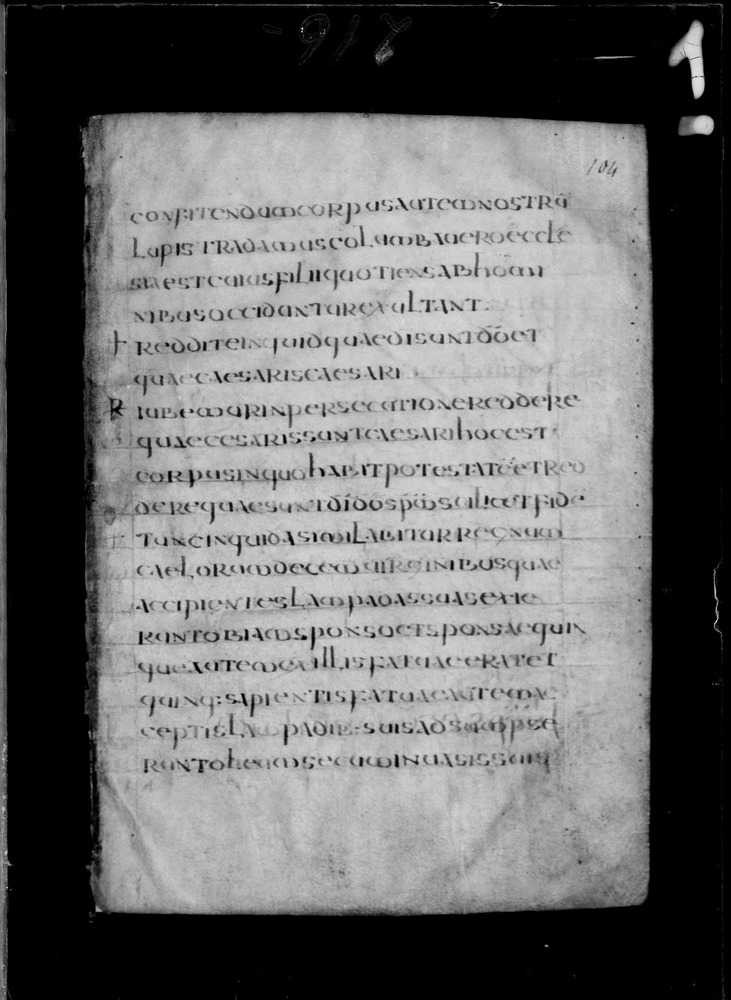 216
1
104
CONFITENDUM CORPUS AUTEM NOSTRU
LAPIS TRADAMUS COLUMBA UERO ECCLE
SIA EST CUIUS FILII QUOTIENS AB HOMI
NIBUS OCCIDUNTUR EXULTANT
REDDITE INQUID QUAE DI SUNT DO ET
QUAE CAESARIS CAESARI
R IUBEMUR IN PERSECUTIONE REDDERE
QUAE CESARIS SUNT CAESARI HOC EST
CORPUS IN QUO HABIT POTESTATE ET RED
DERE QUAE SUNT DI DO SPM SCILICET FIDE
TUNC INQUID ASIMILABITUR REGNUM
CAELORUM DECEM UIRGINIBUS QUAE
ACCIPIENTES LAMPADAS SUAS EXIE
RUNT OBIAM SPONSO ET SPONSAE QUIN
QUE AUTEM EX ILLIS FATUAE ERAT ET
QUINQ: SAPIENTIS FATUAE AUTEM AC
CEPTIS LAMPADIB: SUIS
RUNT OLEUM SECUM IN UASIS SUIS